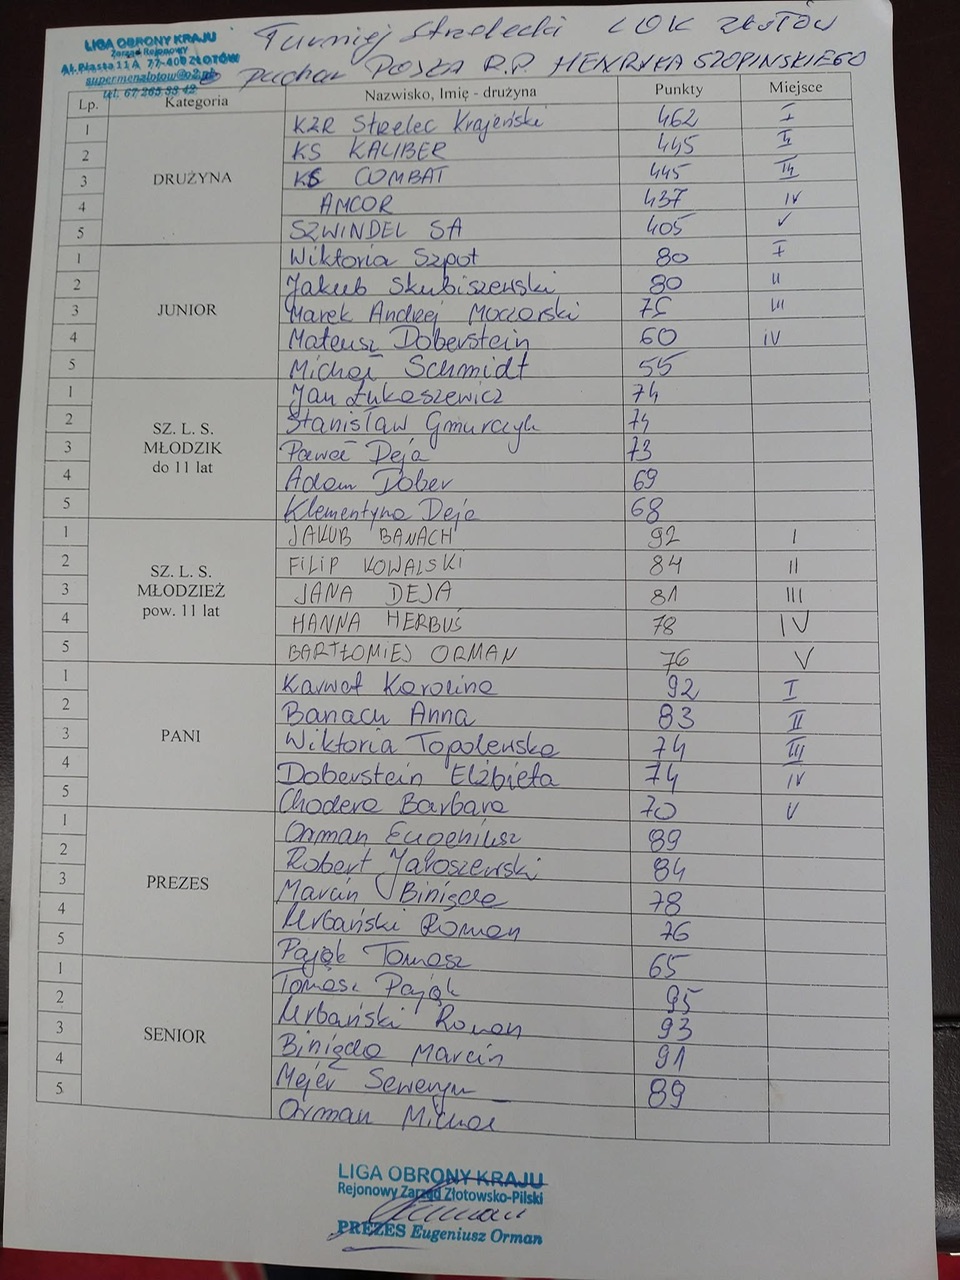 LIGA OBRONY KRAJU
Zarząd Rejonowy
Al. Piasta 11A 77-400 ZŁOTÓW
supermenzlotow@o2.pl
tel. 67 263 33 42
Turniej Strzelecki LOK Złotów
o puchar POSŁA R.P. HENRYKA SZOPIŃSKIEGO
Lp. Kategoria Nazwisko, Imię - drużyna Punkty Miejsce
DRUŻYNA
1 KŻR Strzelec Krajeński 462 I
2 KS KALIBER 445 II
3 KS COMBAT 445 III
4 AMCOR 437 IV
5 SZWINDEL SA 405 V
JUNIOR
1 Wiktoria Szpot 80 I
2 Jakub Skubiszewski 80 II
3 Marek Andrzej Moczarski 75 III
4 Mateusz Doberstein 60 IV
5 Michał Schmidt 55
SZ. L. S.
MŁODZIK
do 11 lat
1 Jan Łukaszewicz 74
2 Stanisław Gmurczyk 74
3 Paweł Deja 73
4 Adam Dober 69
5 Klementyna Deja 68
SZ. L. S.
MŁODZIEŻ
pow. 11 lat
1 JAKUB BANACH 92 I
2 FILIP KOWALSKI 84 II
3 JANA DEJA 81 III
4 HANNA HERBUŚ 78 IV
5 BARTŁOMIEJ ORMAN 76 V
PANI
1 Karwat Karolina 92 I
2 Banach Anna 83 II
3 Wiktoria Topolewska 74 III
4 Doberstein Elżbieta 74 IV
5 Chodera Barbara 70 V
PREZES
1 Orman Eugeniusz 89
2 Robert Jałoszewski 84
3 Marcin Binięda 78
4 Urbański Roman 76
5 Pająk Tomasz 65
SENIOR
1 Tomasz Pająk 95
2 Urbański Roman 93
3 Binięda Marcin 91
4 Mejer Seweryn 89
5 Orman Michał
LIGA OBRONY KRAJU
Rejonowy Zarząd Złotowsko-Pilski
PREZES Eugeniusz Orman